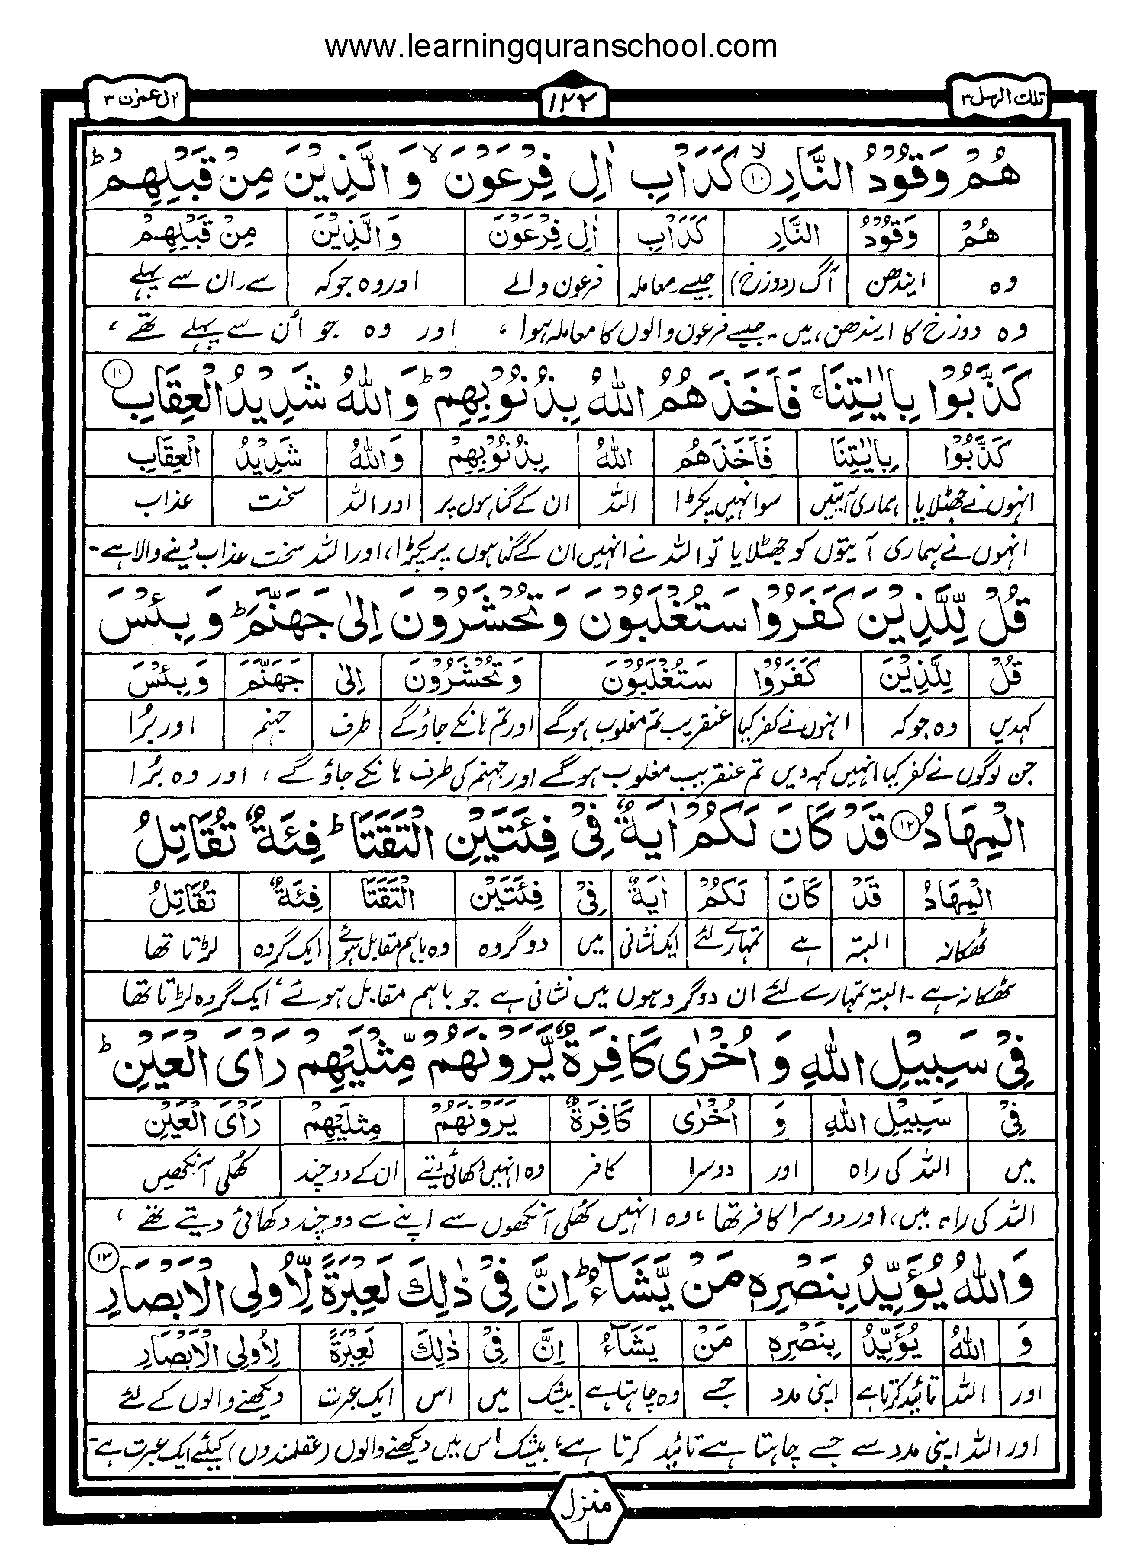 www.learningquranschool.com
تلك الرسل ۳ ۱۲۲ اٰل عمرٰن ۳
هُمْ وَقُوْدُ النَّارِ ۙ۱۰ كَدَاْبِ اٰلِ فِرْعَوْنَ ۙ وَالَّذِيْنَ مِنْ قَبْلِهِمْ ؕ
هُمْ وَقُوْدُ النَّارِ كَدَاْبِ اٰلِ فِرْعَوْنَ وَالَّذِيْنَ مِنْ قَبْلِهِمْ
وہ ایندھن آگ (دوزخ) جیسے معاملہ فرعون والے اور وہ جو کہ سے ۔ ان سے پہلے
وہ دوزخ کا ایندھن ہیں ۔ جیسے فرعون والوں کا معاملہ ہوا ، اور وہ جو اُن سے پہلے تھے ،
كَذَّبُوْا بِاٰيٰتِنَا ۚ فَاَخَذَهُمُ اللّٰهُ بِذُنُوْبِهِمْ ؕ وَاللّٰهُ شَدِيْدُ الْعِقَابِ ۱۱
كَذَّبُوْا بِاٰيٰتِنَا فَاَخَذَهُمُ اللّٰهُ بِذُنُوْبِهِمْ وَاللّٰهُ شَدِيْدُ الْعِقَابِ
انہوں نے جھٹلایا ہماری آیتیں سو انہیں پکڑا اللہ ان کے گناہوں پر اور اللہ سخت عذاب
انہوں نے ہماری آیتوں کو جھٹلایا تو اللہ نے انہیں ان کے گناہوں پر پکڑا ، اور اللہ سخت عذاب دینے والا ہے ۔
قُلْ لِّلَّذِيْنَ كَفَرُوْا سَتُغْلَبُوْنَ وَتُحْشَرُوْنَ اِلٰى جَهَنَّمَ ؕ وَبِئْسَ
قُلْ لِّلَّذِيْنَ كَفَرُوْا سَتُغْلَبُوْنَ وَتُحْشَرُوْنَ اِلٰى جَهَنَّمَ وَبِئْسَ
کہدیں وہ جو کہ انہوں نے کفر کیا عنقریب تم مغلوب ہوگے اور تم ہانکے جاؤگے طرف جہنم اور بُرا
جن لوگوں نے کفر کیا انہیں کہہ دیں تم عنقریب مغلوب ہوگے اور جہنم کی طرف ہانکے جاؤگے ، اور وہ بُرا
الْمِهَادُ ۱۲ قَدْ كَانَ لَكُمْ اٰيَةٌ فِيْ فِئَتَيْنِ الْتَقَتَا ؕ فِئَةٌ تُقَاتِلُ
الْمِهَادُ قَدْ كَانَ لَكُمْ اٰيَةٌ فِيْ فِئَتَيْنِ الْتَقَتَا فِئَةٌ تُقَاتِلُ
ٹھکانہ البتہ ہے تمہارے لئے ایک نشانی میں دو گروہ وہ باہم مقابل ہوئے ایک گروہ لڑتا تھا
ٹھکانہ ہے ۔ البتہ تمہارے لئے ان دو گروہوں میں نشانی ہے جو باہم مقابل ہوئے ، ایک گروہ لڑتا تھا
فِيْ سَبِيْلِ اللّٰهِ وَاُخْرٰى كَافِرَةٌ يَّرَوْنَهُمْ مِّثْلَيْهِمْ رَاْيَ الْعَيْنِ ؕ
فِيْ سَبِيْلِ اللّٰهِ وَ اُخْرٰى كَافِرَةٌ يَرَوْنَهُمْ مِثْلَيْهِمْ رَاْيَ الْعَيْنِ
میں اللہ کی راہ اور دوسرا کافر وہ انہیں دکھائی دیتے ان کے دو چند کھلی آنکھیں
اللہ کی راہ میں ، اور دوسرا کافر تھا ، وہ انہیں کھلی آنکھوں سے اپنے سے دو چند دکھائی دیتے تھے ،
وَاللّٰهُ يُؤَيِّدُ بِنَصْرِهٖ مَنْ يَّشَآءُ ؕ اِنَّ فِيْ ذٰلِكَ لَعِبْرَةً لِّاُولِي الْاَبْصَارِ ۱۳
وَ اللّٰهُ يُؤَيِّدُ بِنَصْرِهٖ مَنْ يَشَآءُ اِنَّ فِيْ ذٰلِكَ لَعِبْرَةً لِاُولِي الْاَبْصَارِ
اور اللہ تائید کرتا ہے اپنی مدد جسے وہ چاہتا ہے بیشک میں اس ایک عبرت دیکھنے والوں کے لئے
اور اللہ اپنی مدد سے جسے چاہتا ہے تائید کرتا ہے ، بیشک اس میں دیکھنے والوں (عقلمندوں) کیلئے ایک عبرت ہے ۔
منزل ۱